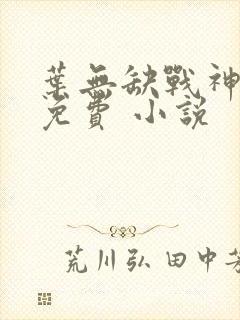 葉無缺戰神
免費 小說
荒川弘 田中芳